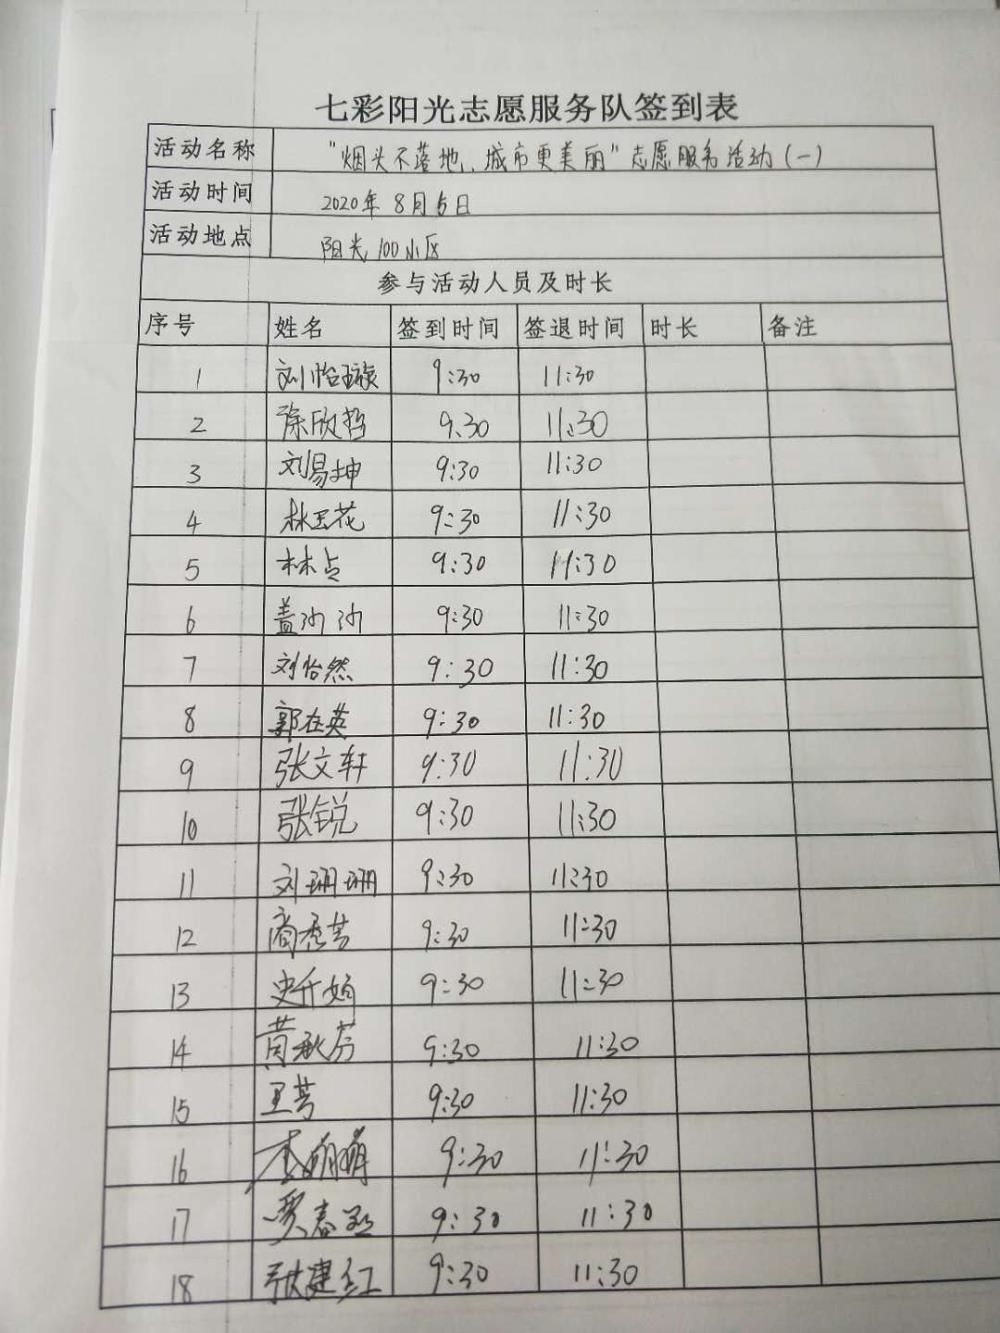 七彩阳光志愿服务队签到表
活动名称 "烟头不落地、城市更美丽"志愿服务活动(一)
活动时间 2020年8月5日
活动地点 阳光100小区
参与活动人员及时长
序号 姓名 签到时间 签退时间 时长 备注
1 刘怡璇 9:30 11:30
2 徐欣哲 9:30 11:30
3 刘易坤 9:30 11:30
4 林玉花 9:30 11:30
5 林占 9:30 11:30
6 盖沙沙 9:30 11:30
7 刘怡然 9:30 11:30
8 郭在英 9:30 11:30
9 张文轩 9:30 11:30
10 张锐 9:30 11:30
11 刘珊珊 9:30 11:30
12 商秀芳 9:30 11:30
13 9:30 11:30
14 黄秋芬 9:30 11:30
15 王芳 9:30 11:30
16 李萌萌 9:30 11:30
17 9:30 11:30
18 张建红 9:30 11:30